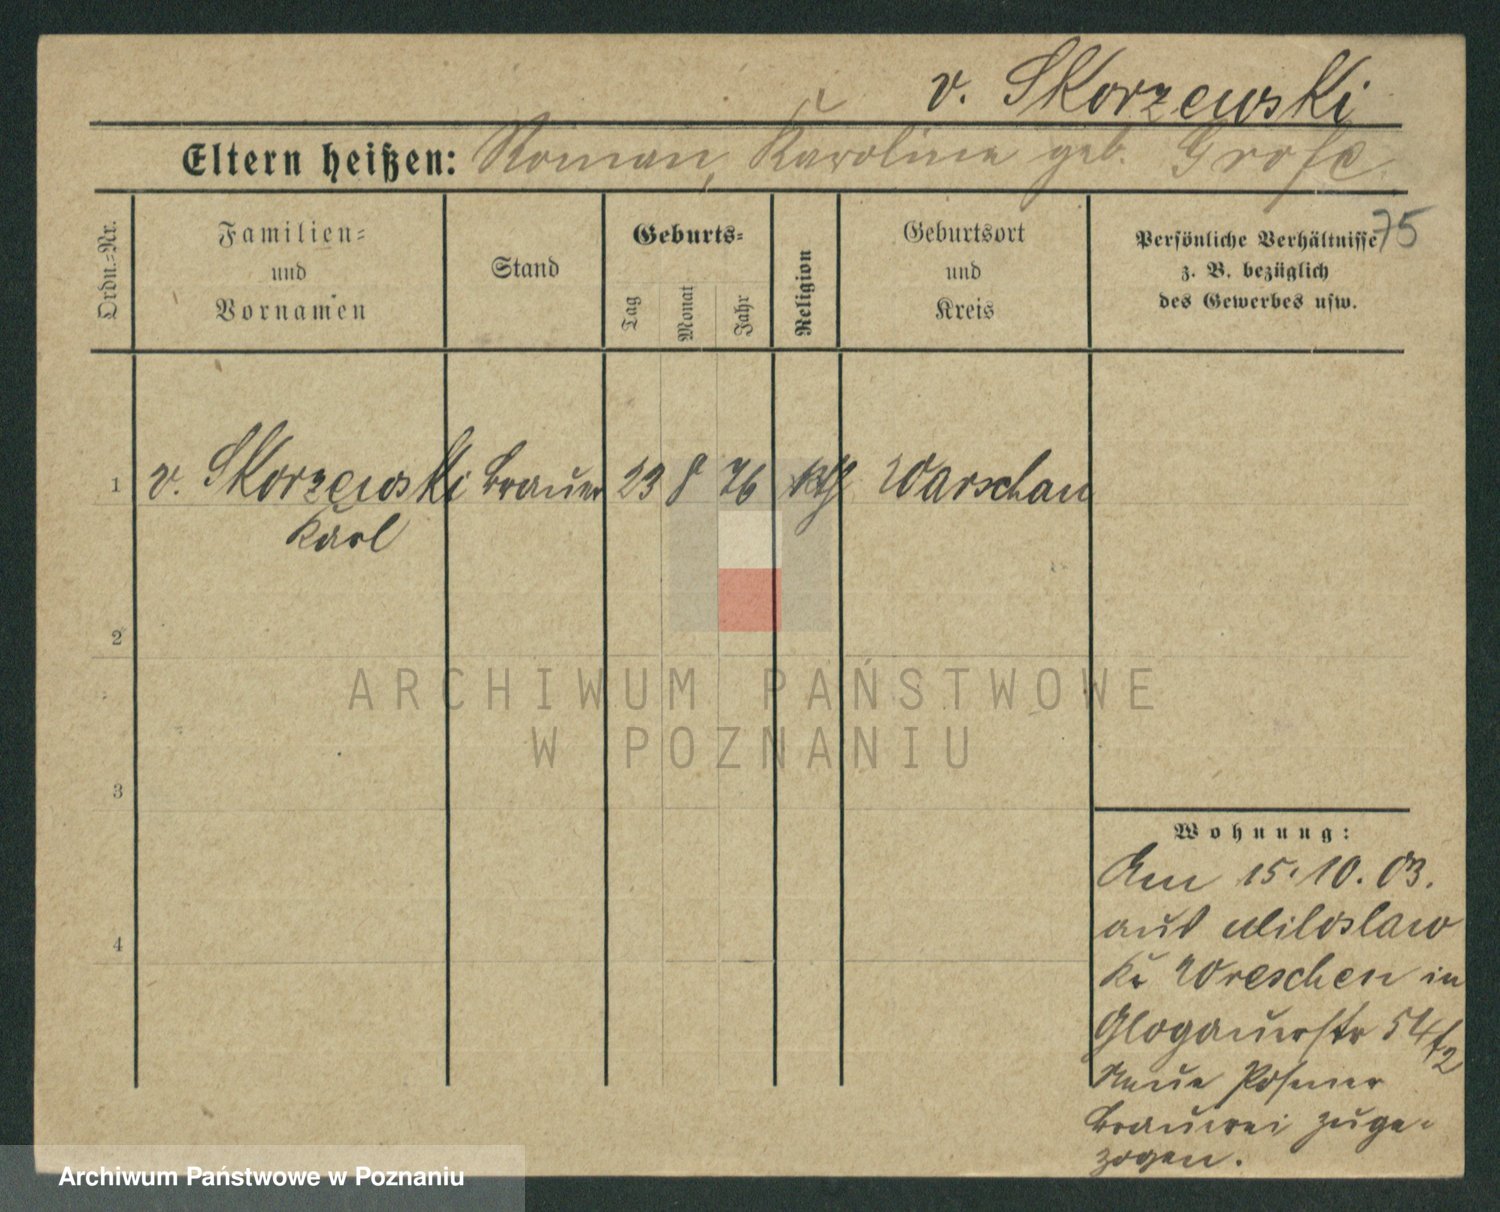 v. Skorzewski
Eltern heißen: Roman, Karoline geb. Grose
75
Ordn.-Nr.
Familien-
und
Vornamen
Stand
Geburts-
Tag
Monat
Jahr
Religion
Geburtsort
und
Kreis
Persönliche Verhältnisse
z. B. bezüglich
des Gewerbes usw.
1 v. Skorzewski Brauer 23 8 76 kth Warschau
Karl
2
3
4
Wohnung:
Am 15.10.03.
aus Miloslaw
Kr Wreschen in
Glogauerstr 54/2
Neue Posener
Brauerei zuge-
zogen.
ARCHIWUM PAŃSTWOWE
W POZNANIU
Archiwum Państwowe w Poznaniu